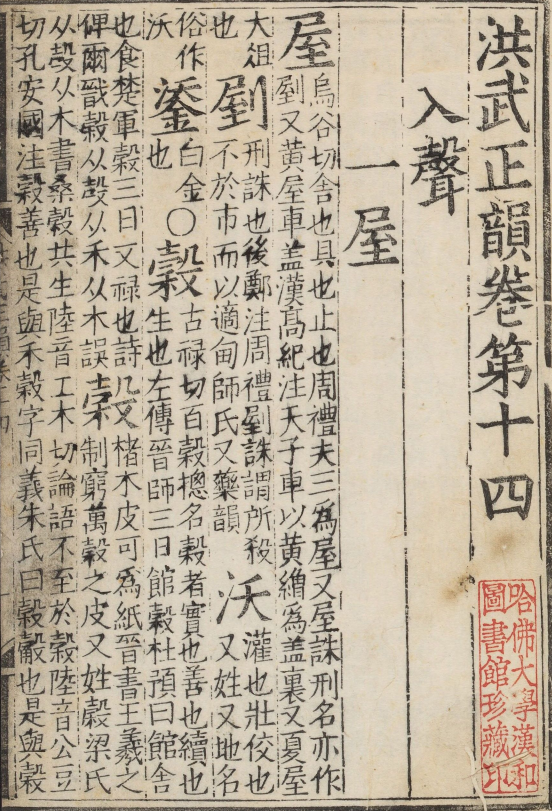 洪武正韻卷第十四
哈佛大學漢和
圖書館珍藏印
入聲
一屋
屋
烏谷切舍也具也止也周禮夫三為屋又屋誅刑名亦作
剭又黃屋車盖漢髙紀注天子車以黃繒為盖裏又夏屋
大俎
也
剭
刑誅也後鄭注周禮剭誅謂所殺
不於市而以適甸師氏又藥韻
沃
灌也壯佼也
又姓又地名
俗作
沃
鋈
白金
也
〇
穀
古祿切百穀揔名穀者實也善也續也
生也左傳晉師三日館穀杜預曰館舍
也食楚軍穀三日又祿也詩
俾爾戩穀从㱿从禾从木誤
榖
楮木皮可為紙晉書王羲之
制窮萬穀之皮又姓穀梁氏
从㱿从木書桑榖共生陸音工木切論語不至於穀陸音公豆
切孔安國注穀善也是與禾穀字同義朱氏曰穀觳也是與穀